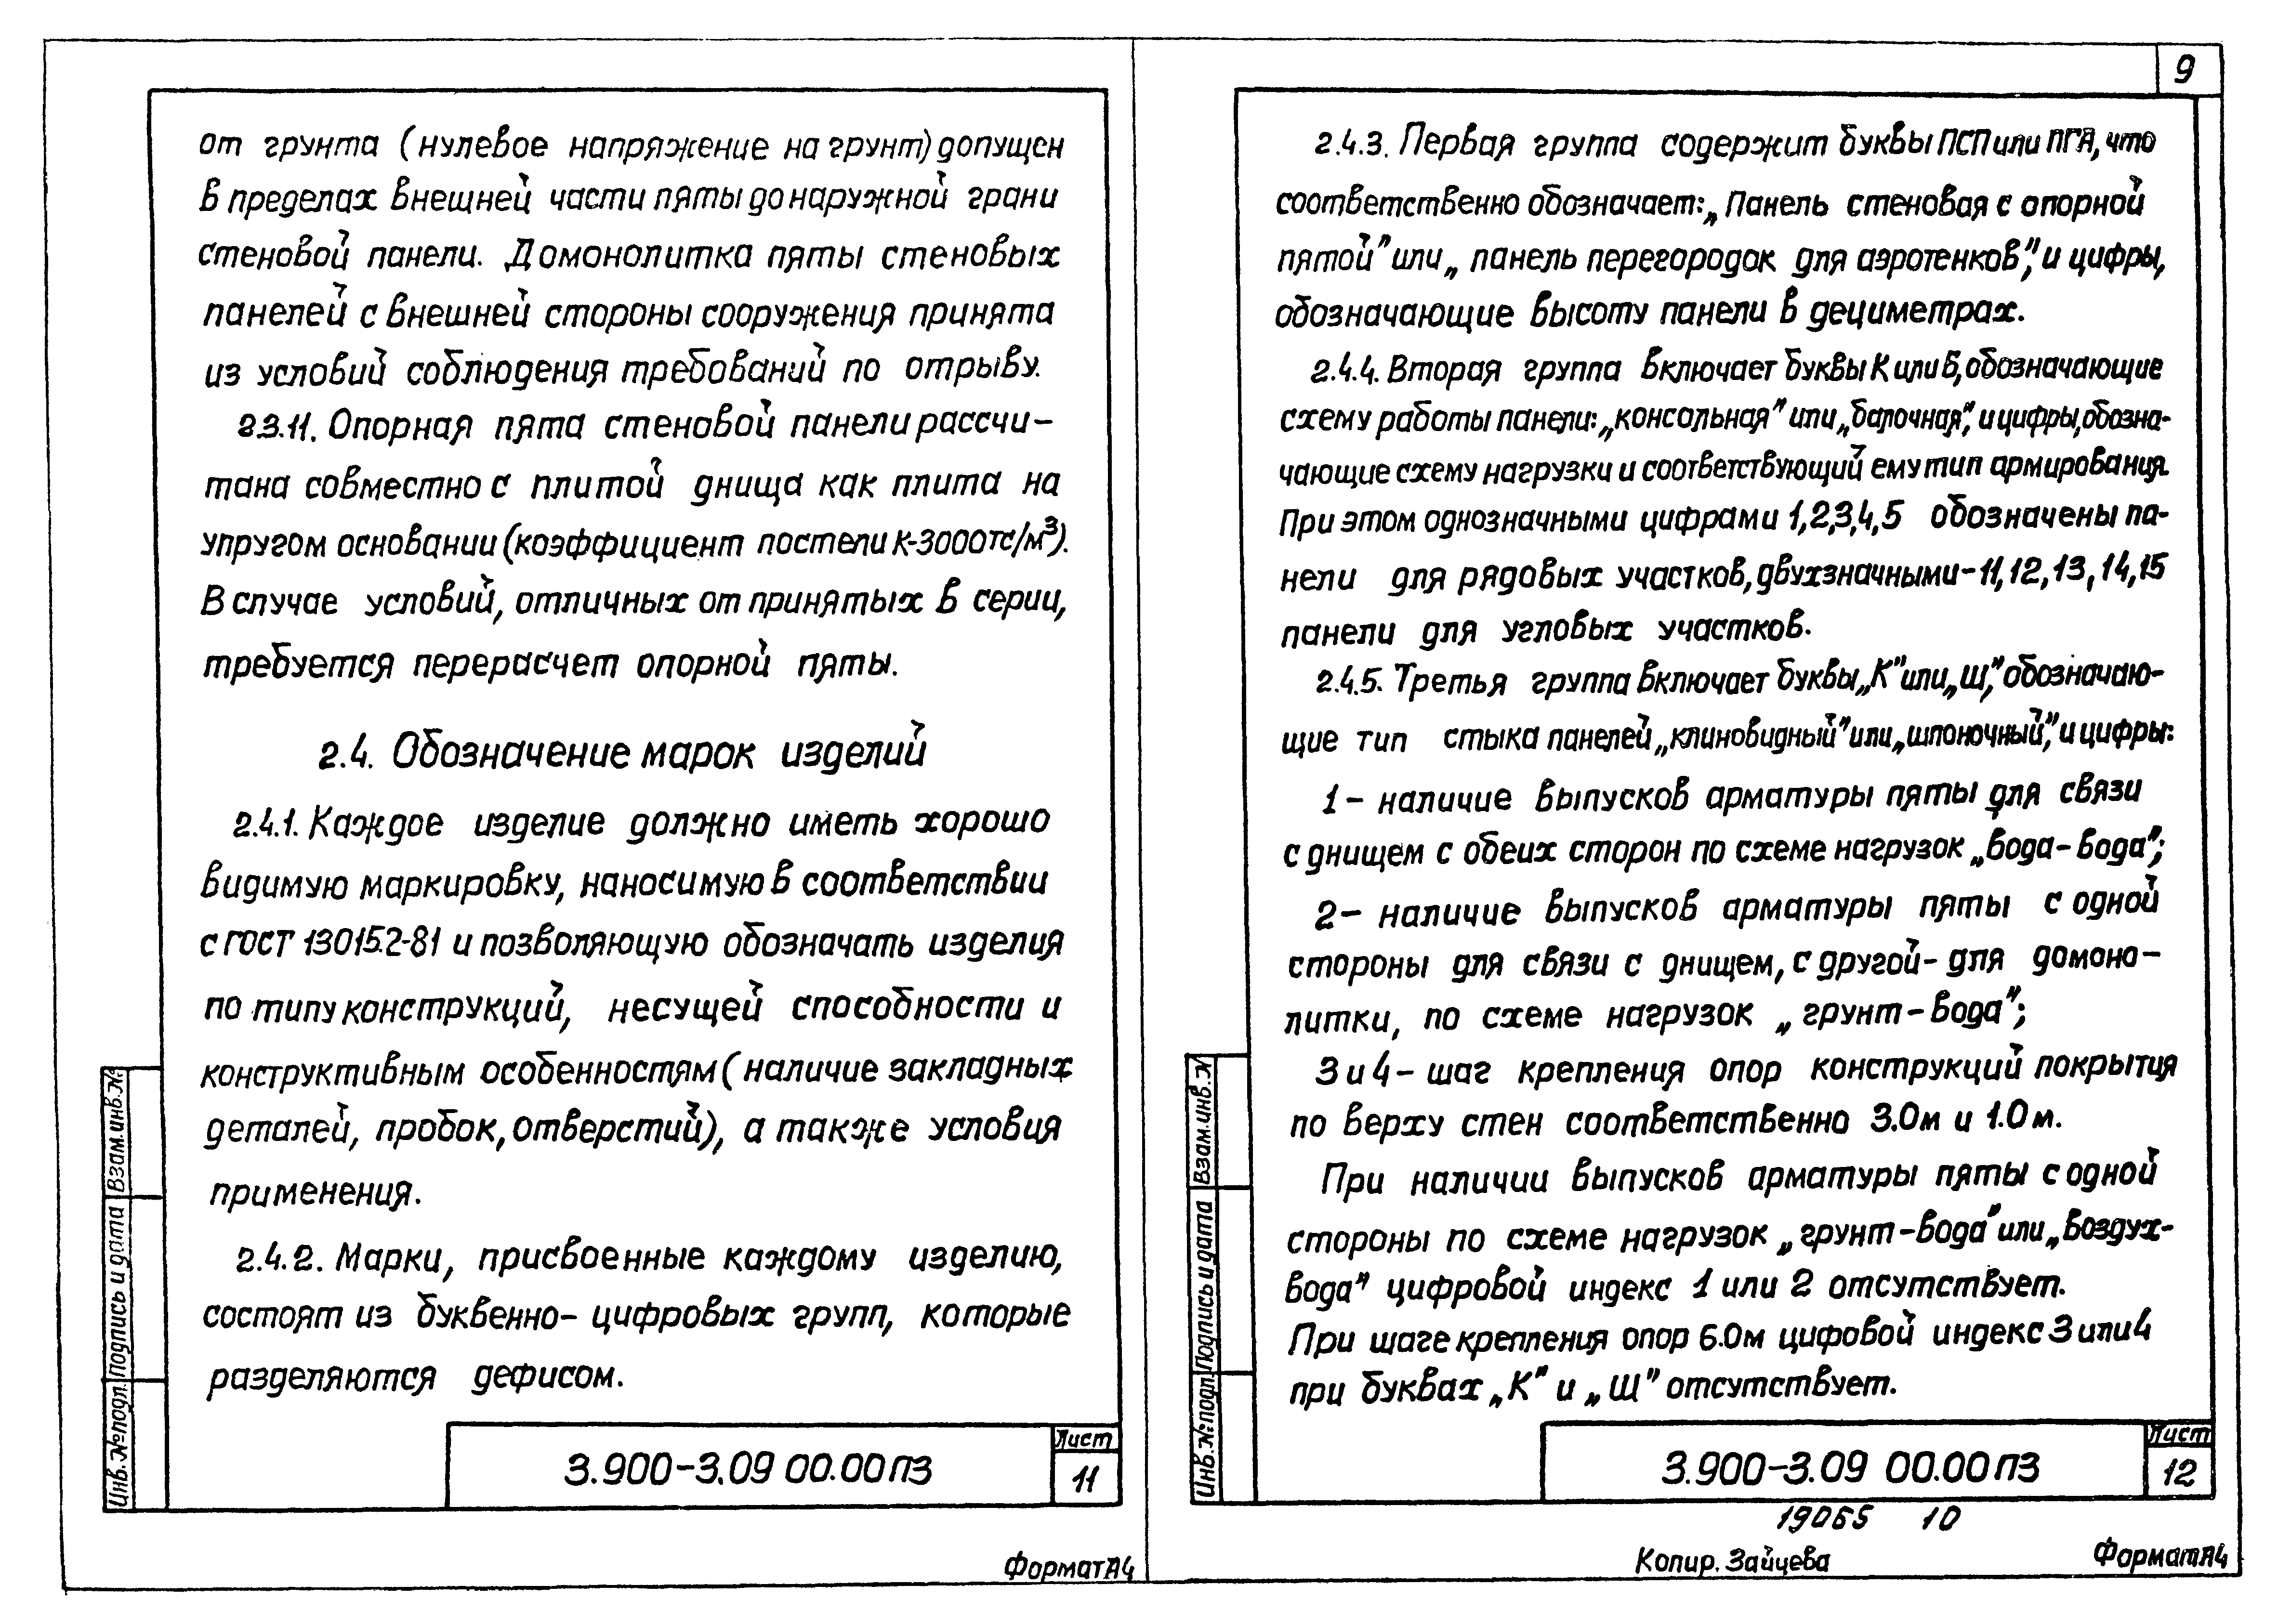 9
от грунта (нулевое напряжение на грунт) допущен
в пределах внешней части пяты до наружной грани
стеновой панели. Домонолитка пяты стеновых
панелей с внешней стороны сооружения принята
из условий соблюдения требований по отрыву.
2.3.11. Опорная пята стеновой панели рассчи-
тана совместно с плитой днища как плита на
упругом основании (коэффициент постели К-3000тс/м³).
В случае условий, отличных от принятых в серии,
требуется перерасчет опорной пяты.
2.4. Обозначение марок изделий
2.4.1. Каждое изделие должно иметь хорошо
видимую маркировку, наносимую в соответствии
с ГОСТ 13015.2-81 и позволяющую обозначать изделия
по типу конструкций, несущей способности и
конструктивным особенностям (наличие закладных
деталей, пробок, отверстий), а также условия
применения.
2.4.2. Марки, присвоенные каждому изделию,
состоят из буквенно-цифровых групп, которые
разделяются дефисом.
Инв.№подл. Подпись и дата Взам.инв.№
3.900-3.09 00.00ПЗ
Лист
11
Формат А4
2.4.3. Первая группа содержит буквы ПСП или ПГА, что
соответственно обозначает: „Панель стеновая с опорной
пятой" или „панель перегородок для аэротенков", и цифры,
обозначающие высоту панели в дециметрах.
2.4.4. Вторая группа включает буквы К или Б, обозначающие
схему работы панели: „консольная" или „балочная", и цифры, обозна-
чающие схему нагрузки и соответствующий ему тип армирования.
При этом однозначными цифрами 1,2,3,4,5 обозначены па-
нели для рядовых участков, двухзначными-11,12,13,14,15
панели для угловых участков.
2.4.5. Третья группа включает буквы „К" или „Щ", обозначаю-
щие тип стыка панелей „клиновидный" или „шпоночный", и цифры:
1- наличие выпусков арматуры пяты для связи
с днищем с обеих сторон по схеме нагрузок „вода-вода";
2- наличие выпусков арматуры пяты с одной
стороны для связи с днищем, с другой- для домоно-
литки, по схеме нагрузок „грунт-вода";
3 и 4- шаг крепления опор конструкций покрытия
по верху стен соответственно 3.0м и 1.0м.
При наличии выпусков арматуры пяты с одной
стороны по схеме нагрузок „грунт-вода" или „воздух-
вода" цифровой индекс 1 или 2 отсутствует.
При шаге крепления опор 6.0м цифовой индекс 3 или 4
при буквах „К" и „Щ" отсутствует.
Инв.№подл. Подпись и дата Взам.инв.№
3.900-3.09 00.00ПЗ
Лист
12
19065 10
Копир. Зайцева
Формат А4